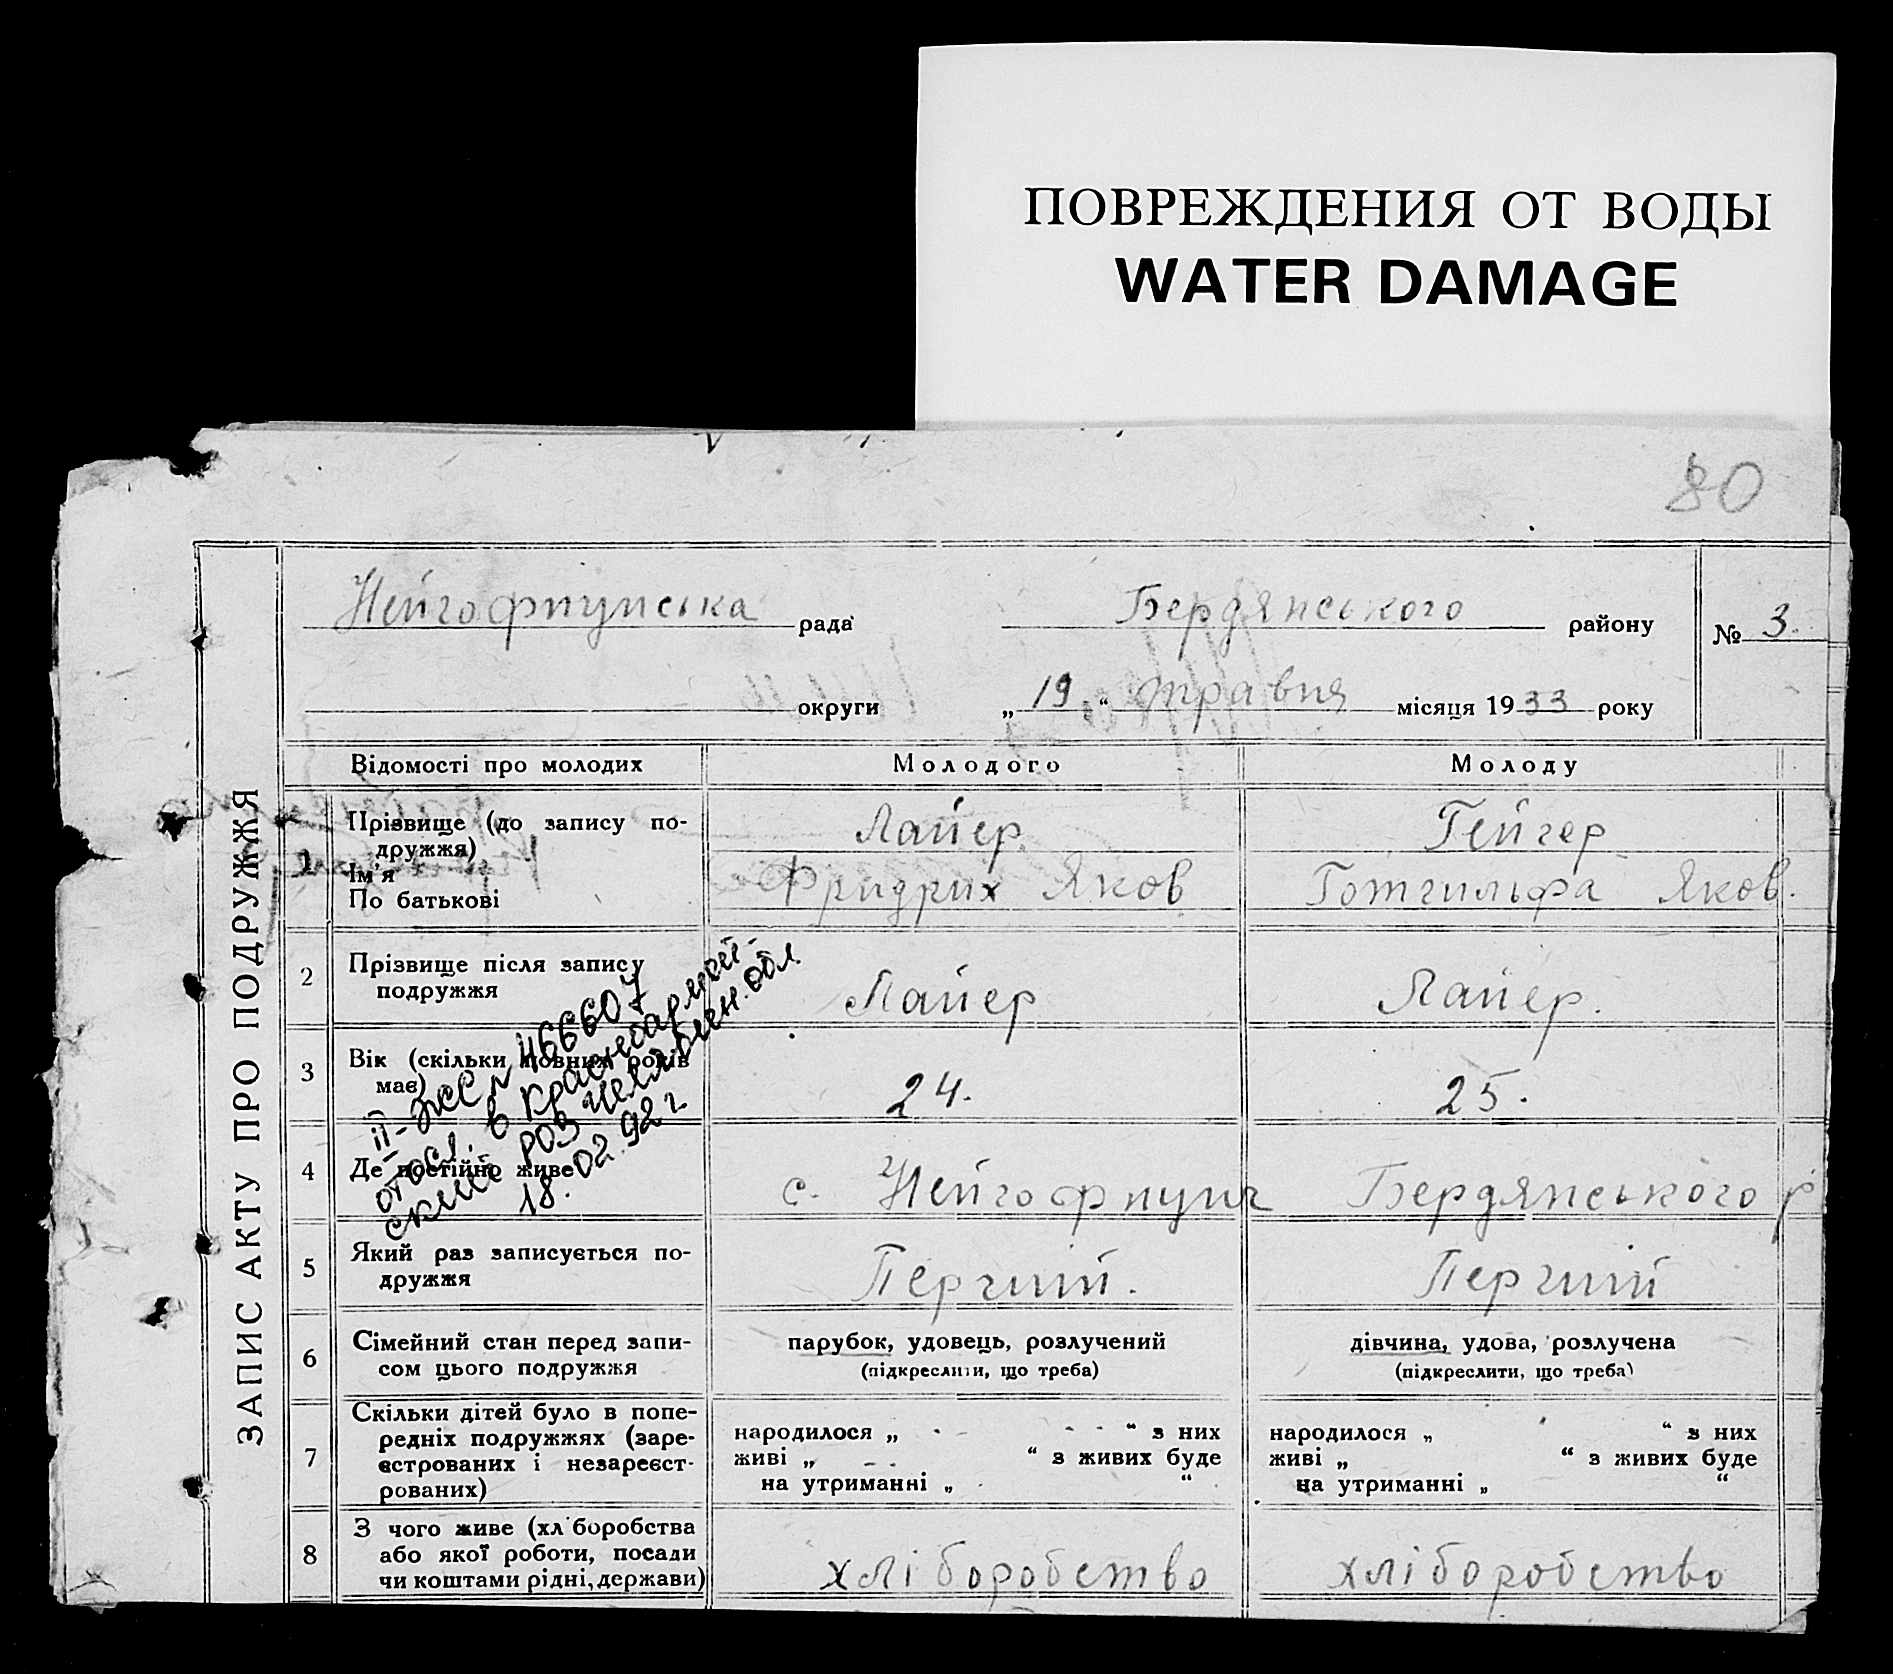 ПОВРЕЖДЕНИЯ ОТ ВОДЫ
WATER DAMAGE
80
ЗАПИС АКТУ ПРО ПОДРУЖЖЯ
Нейгофнунська рада Бердянського району № 3.
округи „19“ травня місяця 1933 року
Відомості про молодих Молодого Молоду
1 Прізвище (до запису по-
дружжя) Лайер Гейгер
Ім'я
По батькові Фридрих Яков Готгильфа Яков.
2 Прізвище після запису
подружжя Лайер Лайер.
3 Вік (скільки повних років
має) 24. 25.
4 Де постійно живе с. Нейгофнунг Бердянського р
5 Який раз записується по-
дружжя Перший. Перший
6 Сімейний стан перед запи-
сом цього подружжя
парубок, удовець, розлучений
(підкреслити, що треба)
дівчина, удова, розлучена
(підкреслити, що треба)
7 Скільки дітей було в попе-
редніх подружжях (заре-
єстрованих і незареєст-
рованих)
народилося „ - - - - “ з них
живі „ - - “ з живих буде
на утриманні „ “
народилося „ “ з них
живі „ “ з живих буде
на утриманні „ “
8 З чого живе (хліборобства
або якої роботи, посади
чи коштами рідні, держави)
хліборобство хліборобство
II-ЖС № 466607
отосл. в Красноармей-
ский РОЗ Челябинск. обл.
18.02.92 г.